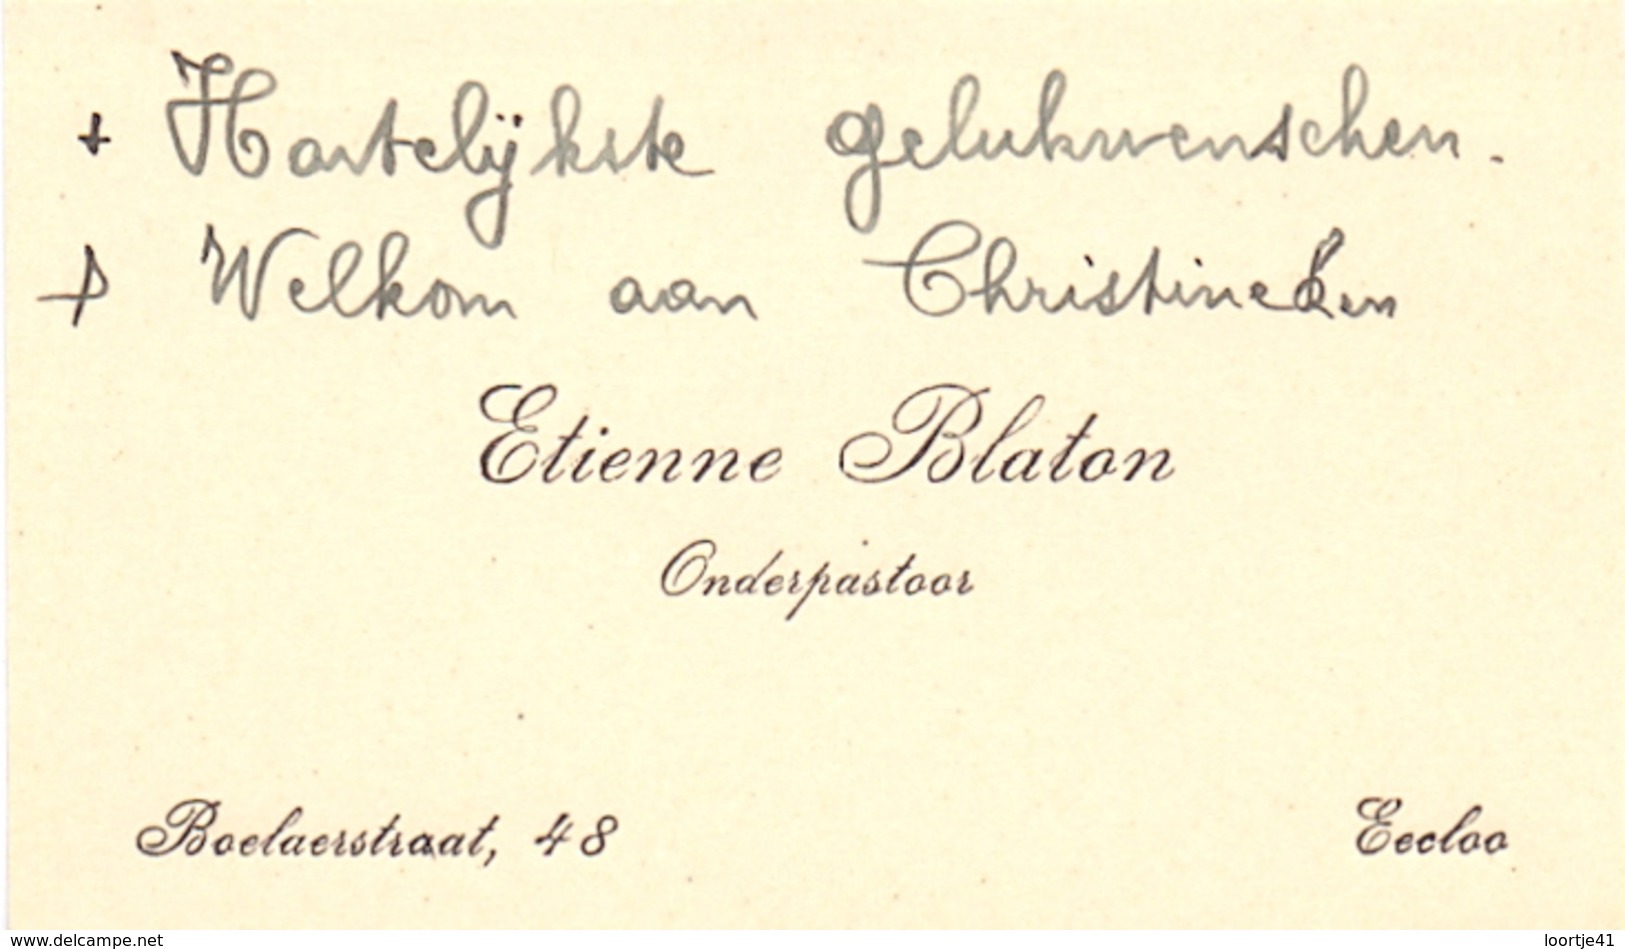 + Hartelijkste gelukwenschen.
+ Welkom aan Christineken
Etienne Blaton
Onderpastoor
Boelaerstraat, 48 Eecloo
www.delcampe.net loortje41